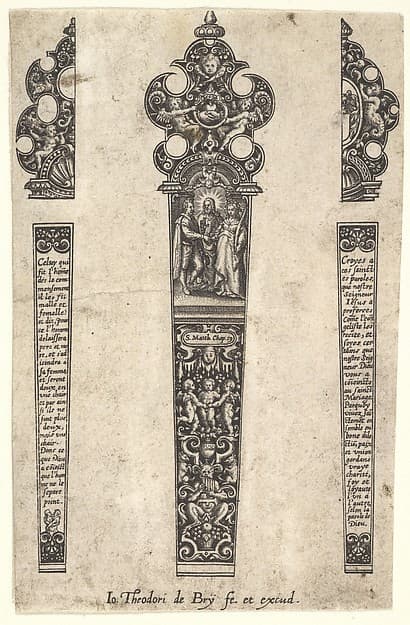 Celuy qui
fit l'homme
des le com
mensement
il les fit
masle et
femelle:
et dit, pour
ce l'homme
delaissera
pere et me
re, et s'ad
ioindra a
sa femme
et seront
deux en
vne chair
et par ain
si ils ne
sont plus
deux,
mais vne
chair.
Donc ce
que Dieu
a
que l'hom
me ne le
separe
point.
S. Matth. Chap. 19
Croyes a
ces sainctes
paroles,
que nostre
Seigneur
Iesus a
proferé,
Come l'euan
geliste les
recite, et
soyes cer
tains que
nostre Seig
neur Dieu
vous a
au sainct
Mariage
Parquoy
viues sain
ctement en
semble en
bone dilec
tiō, paix
et vnion
gardans
vraye
charité,
foy et
loyauté
l'un a
l'autre,
selon la
parole de
Dieu.
Io. Theodori de Brÿ fe. et excud.